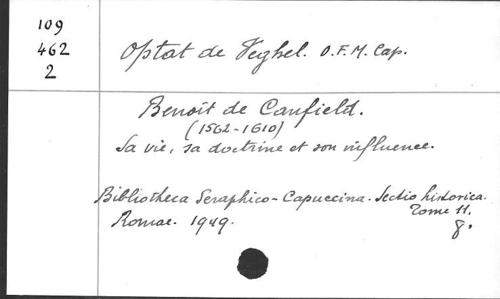 109
462
2
Optat de Veghel. O.F.M. Cap.
Benoit de Canfield.
(1562-1610)
Sa vie, sa doctrine et son influence.
Bibliotheca Seraphico-Capuccina. Sectio historica.
Tome 11.
Romae. 1949.
8.